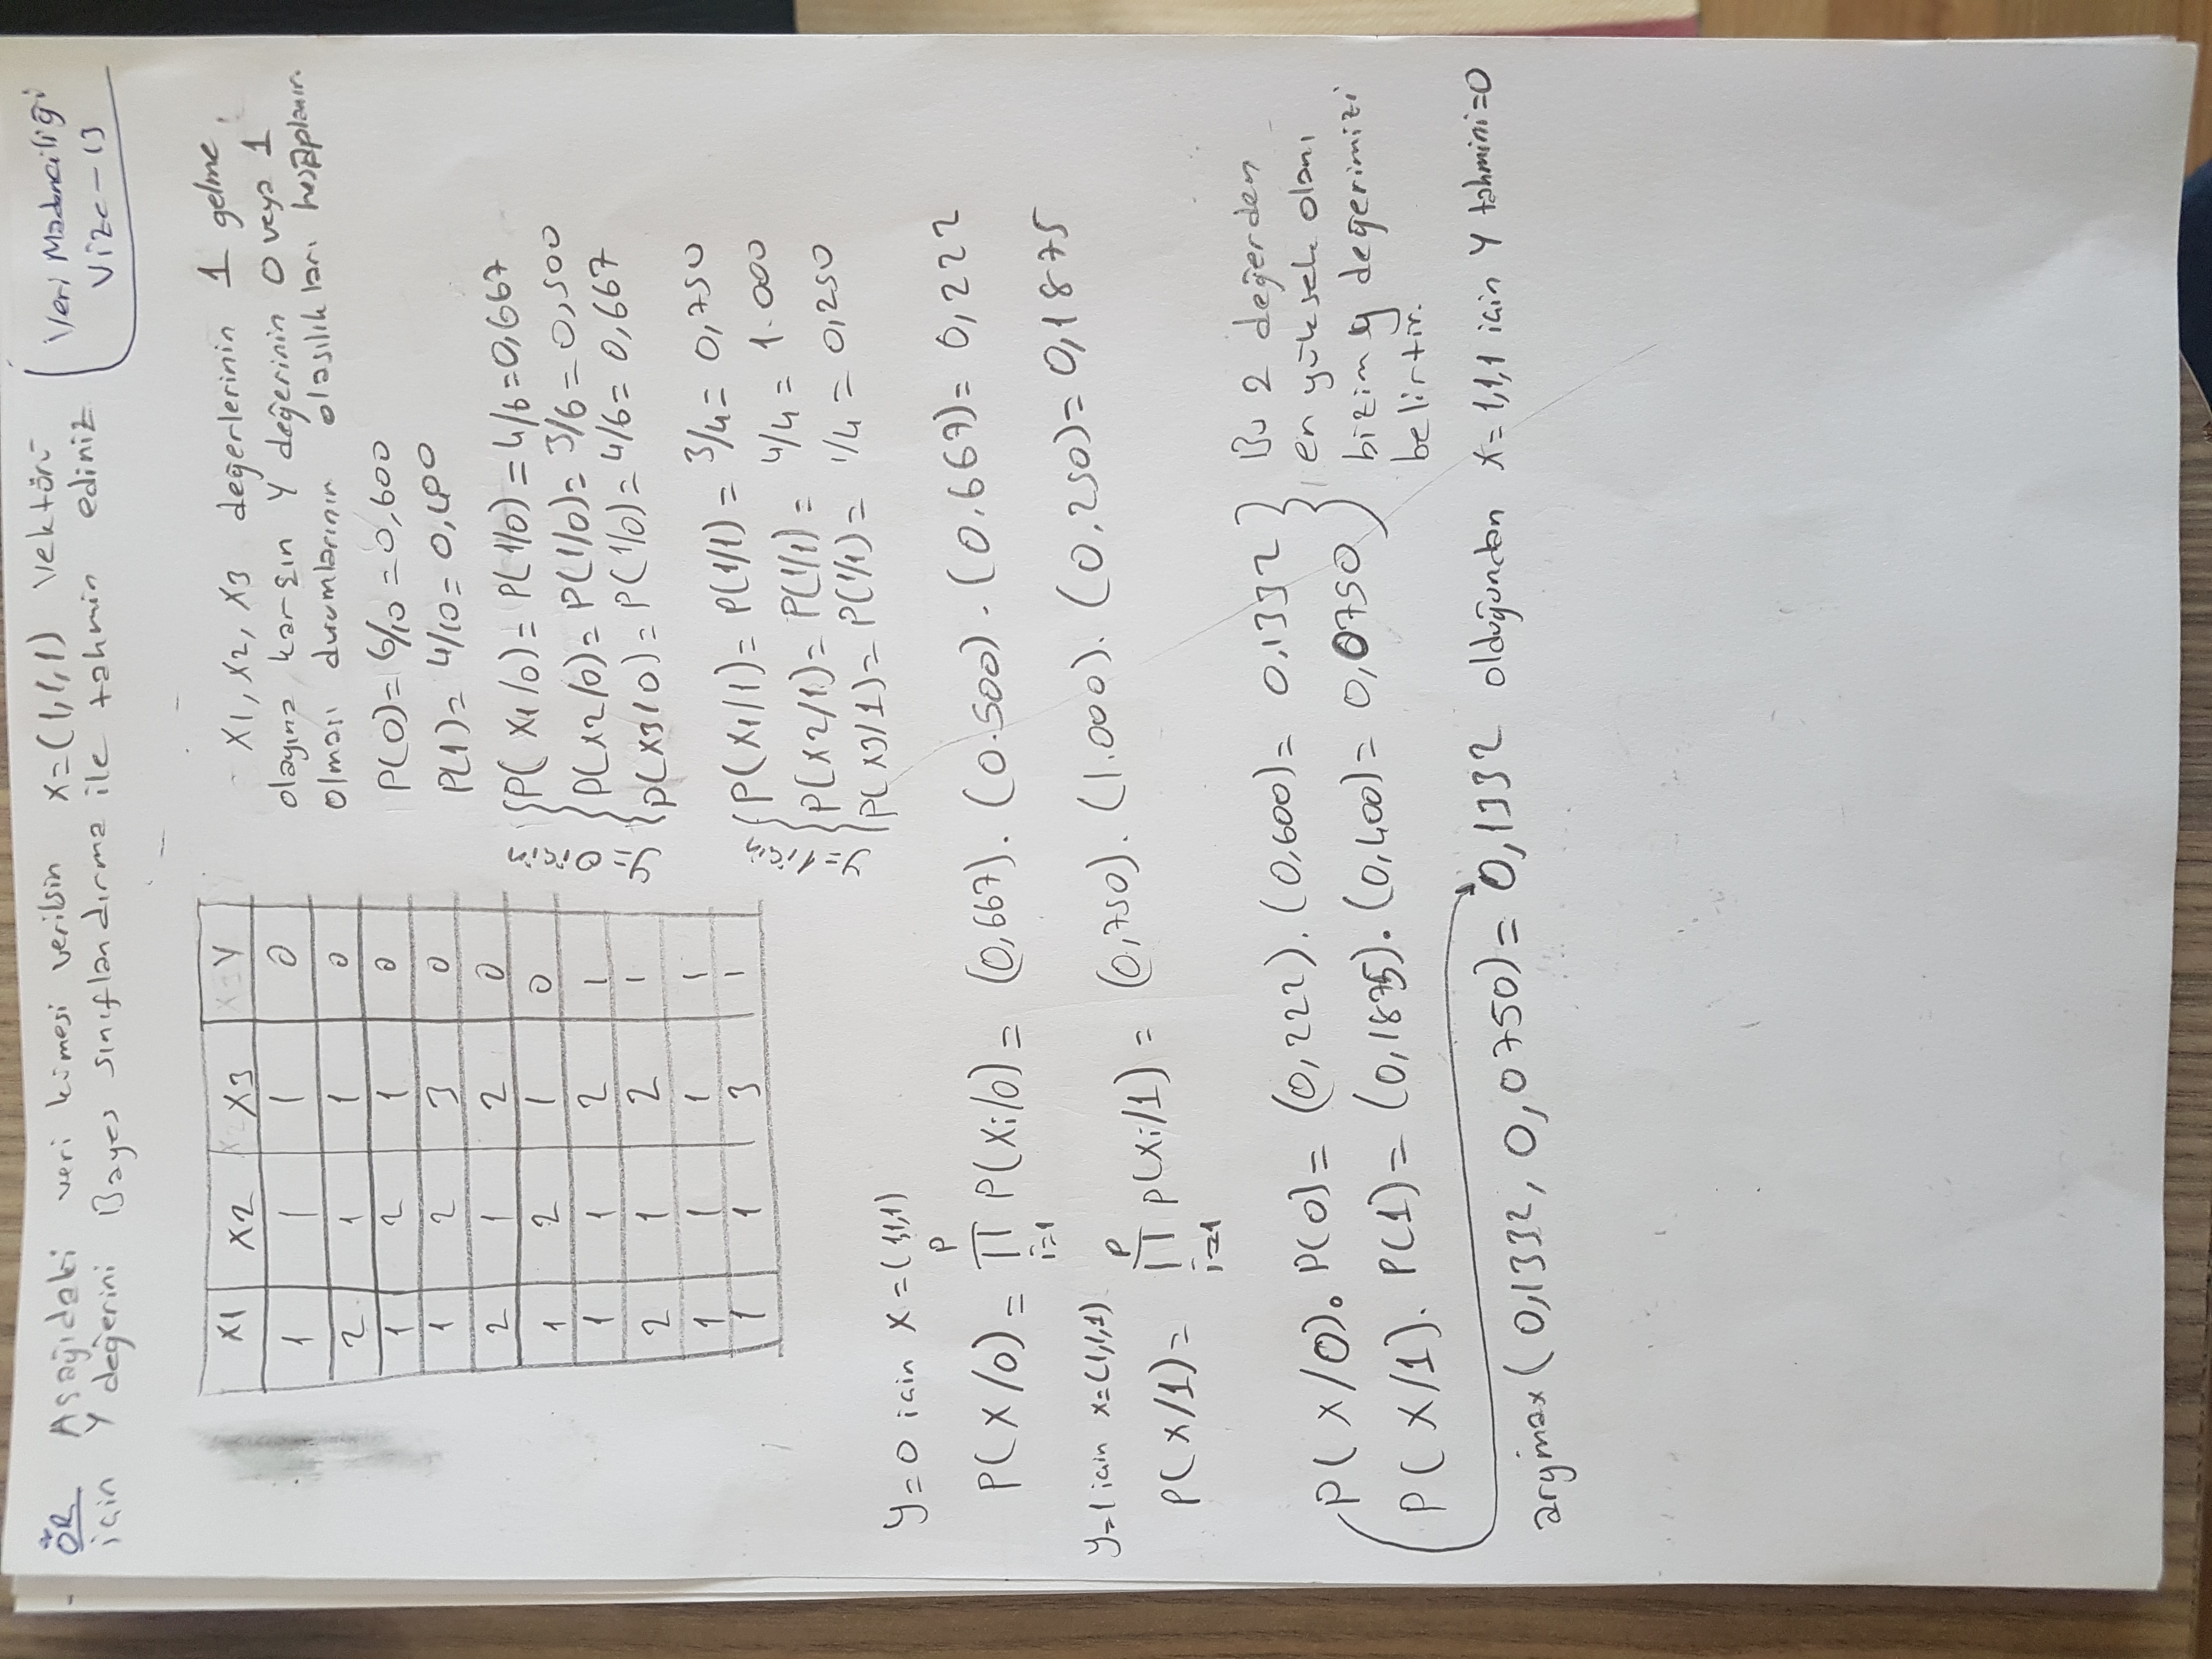 Veri Madenciliği
Vize-13
ÖR Aşağıdaki veri kümesi verilsin x=(1,1,1) vektörü
için y değerini Bayes sınıflandırma ile tahmin ediniz
X1 X2 X3 Y
1 1 1 0
2 1 1 0
1 2 1 0
1 2 3 0
2 1 2 0
1 2 1 0
1 1 2 1
2 1 2 1
1 1 1 1
1 1 3 1
X1, X2, X3 değerlerinin 1 gelme
olayına karşın Y değerinin 0 veya 1
olması durumlarının olasılıkları hesaplanır.
P(0)=6/10=0,600
P(1)=4/10=0,400
y=0 için
P(X1/0)=P(1/0)=4/6=0,667
P(X2/0)=P(1/0)=3/6=0,500
P(X3/0)=P(1/0)=4/6=0,667
y=1 için
P(X1/1)=P(1/1)=3/4=0,750
P(X2/1)=P(1/1)=4/4=1.000
P(X3/1)=P(1/1)=1/4=0,250
y=0 için x=(1,1,1)
P(X/0)=∏ P(Xi/0)=(0,667).(0.500).(0.667)=0,222
y=1 için x=(1,1,1)
P(X/1)=∏ P(Xi/1)=(0,750).(1.000).(0,250)=0,1875
P(X/0).P(0)=(0,222).(0,600)=0,1332
P(X/1).P(1)=(0,1875).(0,400)=0,0750
Bu 2 değerden
en yüksek olanı
bizim y değerimizi
belirtir.
argmax(0,1332, 0,0750)=0,1332 olduğundan x=1,1,1 için Y tahmini=0